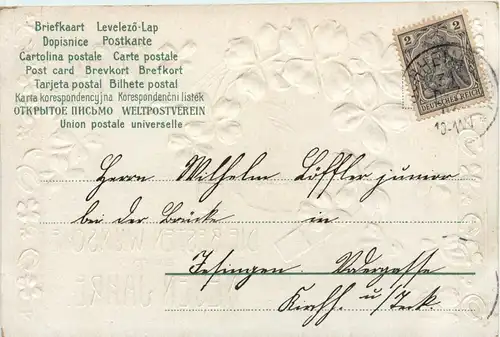 Briefkaart Levelező-Lap
Dopisnice Postkarte
Cartolina postale Carte postale
Post card Brevkort Brefkort
Tarjeta postal Bilhete postal
Karta korespondencyjna Korespondenční listék
ОТКРЫТОЕ ПИСЬМО WELTPOSTVEREIN
Union postale universelle
2 2
DEUTSCHES REICH
Herrn Wilhelm Löffler junior
bei der Brücke in
Jesingen
Kirchh. u/Teck.